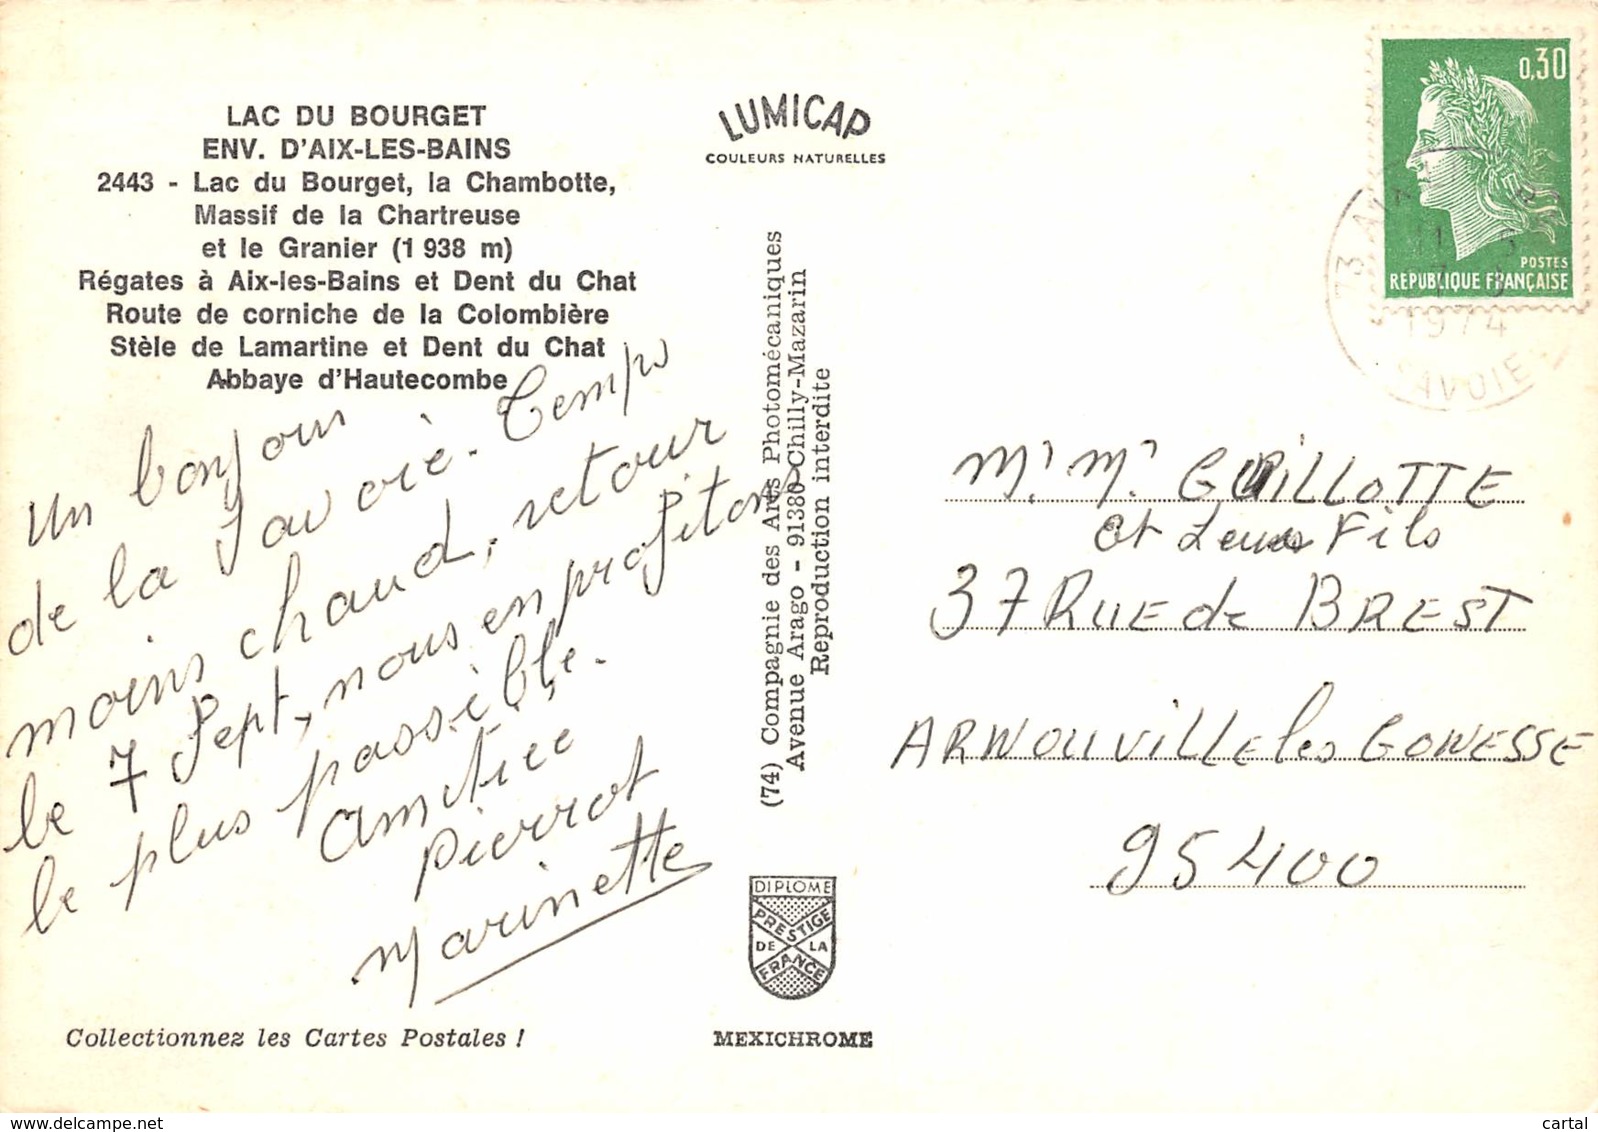 LAC DU BOURGET
ENV. D'AIX-LES-BAINS
2443 - Lac du Bourget, la Chambotte,
Massif de la Chartreuse
et le Granier (1 938 m)
Régates à Aix-les-Bains et Dent du Chat
Route de corniche de la Colombière
Stèle de Lamartine et Dent du Chat
Abbaye d'Hautecombe
Un bonjour
de la Savoie. Temps
moins chaud, retour
le 7 Sept, nous en profitons
le plus possible.
Amitiée
Pierrot
Marinette
Collectionnez les Cartes Postales !
LUMICAP
COULEURS NATURELLES
(74) Compagnie des Arts Photomécaniques
Avenue Arago - 91380 Chilly-Mazarin
Reproduction interdite
DIPLOME
PRESTIGE
DE LA
FRANCE
MEXICHROME
0,30
POSTES
REPUBLIQUE FRANÇAISE
73
1974
SAVOIE
Mr Mr GUILLOTTE
et Leurs Fils
37 RUE de BREST
ARNOUVILLE les GONESSE
95400
delcampe.net
cartal